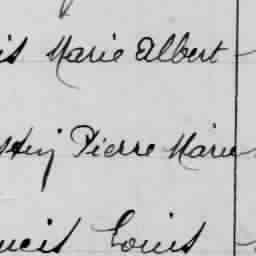 is Marie Albert
Pierre Marie
ncis Louis